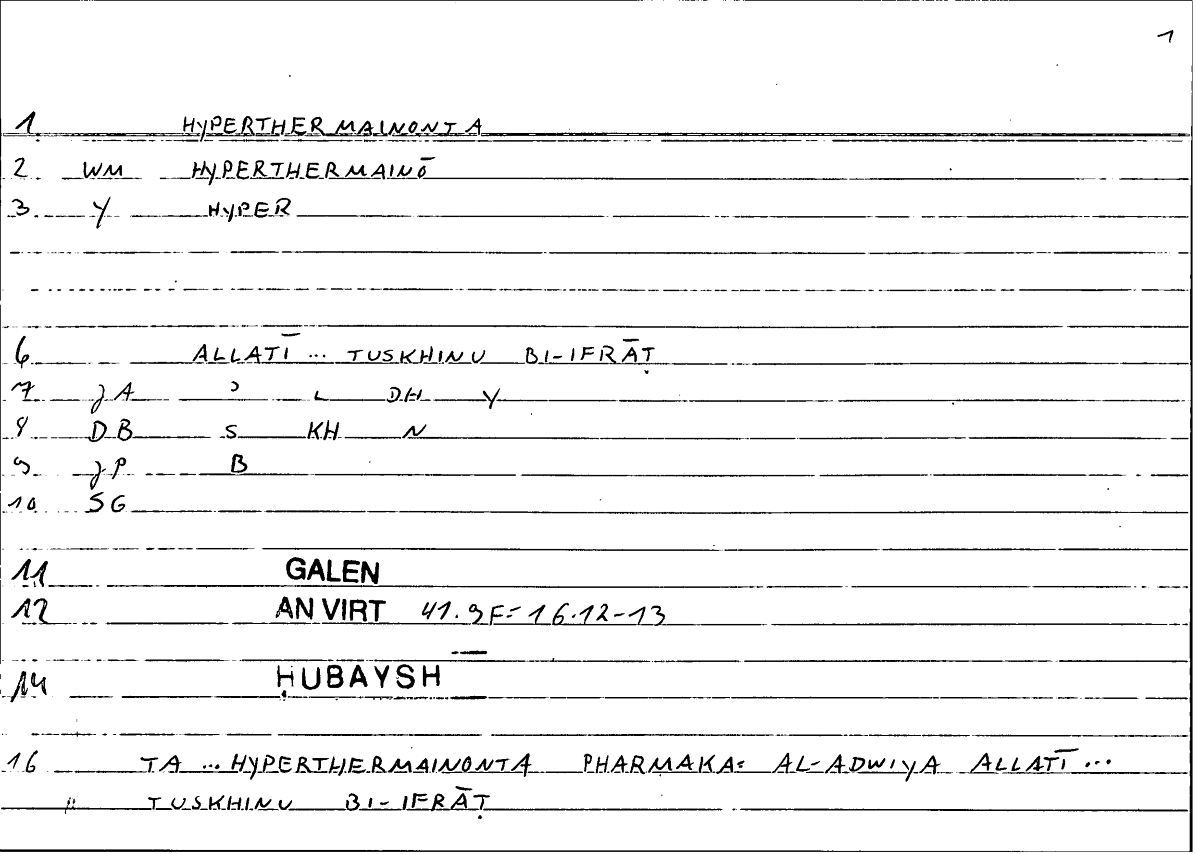 1
1 HYPERTHERMAINONTA
2 WM HYPERTHERMAINŌ
3 Y HYPER
6 ALLATĪ ... TUSKHINU BI-IFRĀṬ
7 JA ʾ L DH Y
8 DB S KH N
9 JP B
10 SG
11 GALEN
12 AN VIRT 41.9F=16.12-13
14 ḤUBAYSH
16 TA ... HYPERTHERMAINONTA PHARMAKA= AL-ADWIYA ALLATĪ ...
" TUSKHINU BI-IFRĀṬ